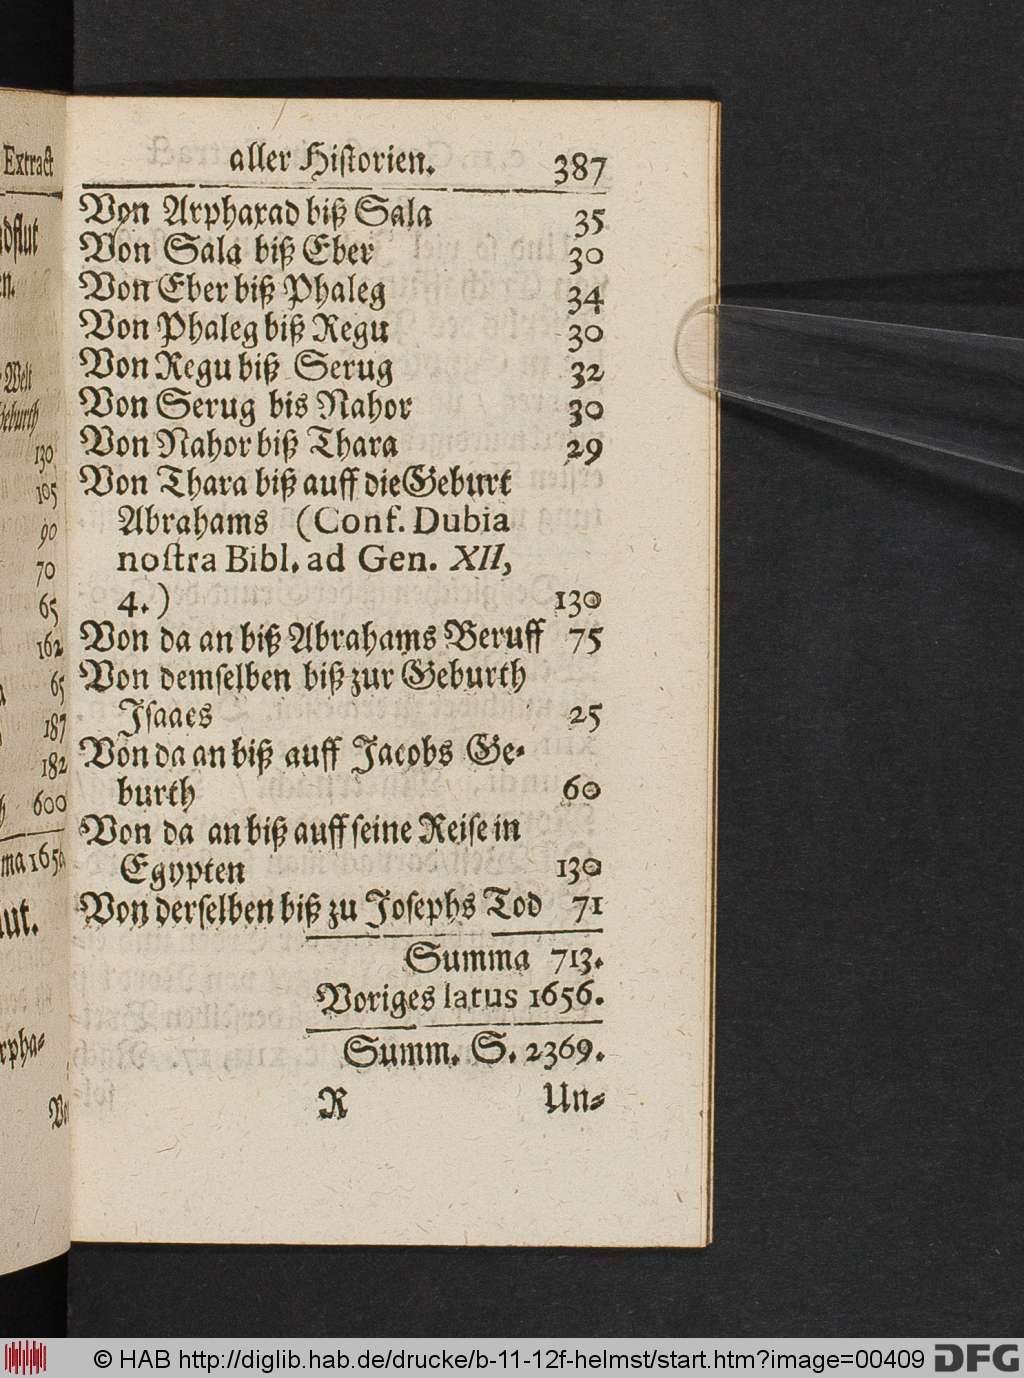 Extract
dflut
en.
Welt
Geburth
130
105
90
70
65
162
65
187
182
600
ma 1656
ut.
rpha⸗
Vo
aller Hiſtorien. 387
Von Arphaxad biß Sala 35
Von Sala biß Eber 30
Von Eber biß Phaleg 34
Von Phaleg biß Regu 30
Von Regu biß Serug 32
Von Serug bis Nahor 30
Von Nahor biß Thara 29
Von Thara biß auff die Geburt
Abrahams (Conf. Dubia
noſtra Bibl. ad Gen. XII,
4.) 130
Von da an biß Abrahams Beruff 75
Von demſelben biß zur Geburth
Iſaacs 25
Von da an biß auff Jacobs Ge⸗
burth 60
Von da an biß auff ſeine Reiſe in
Egypten 130
Von derſelben biß zu Joſephs Tod 71
Summa 713.
Voriges latus 1656.
Summ. S. 2369.
R Un⸗
© HAB http://diglib.hab.de/drucke/b-11-12f-helmst/start.htm?image=00409 DFG